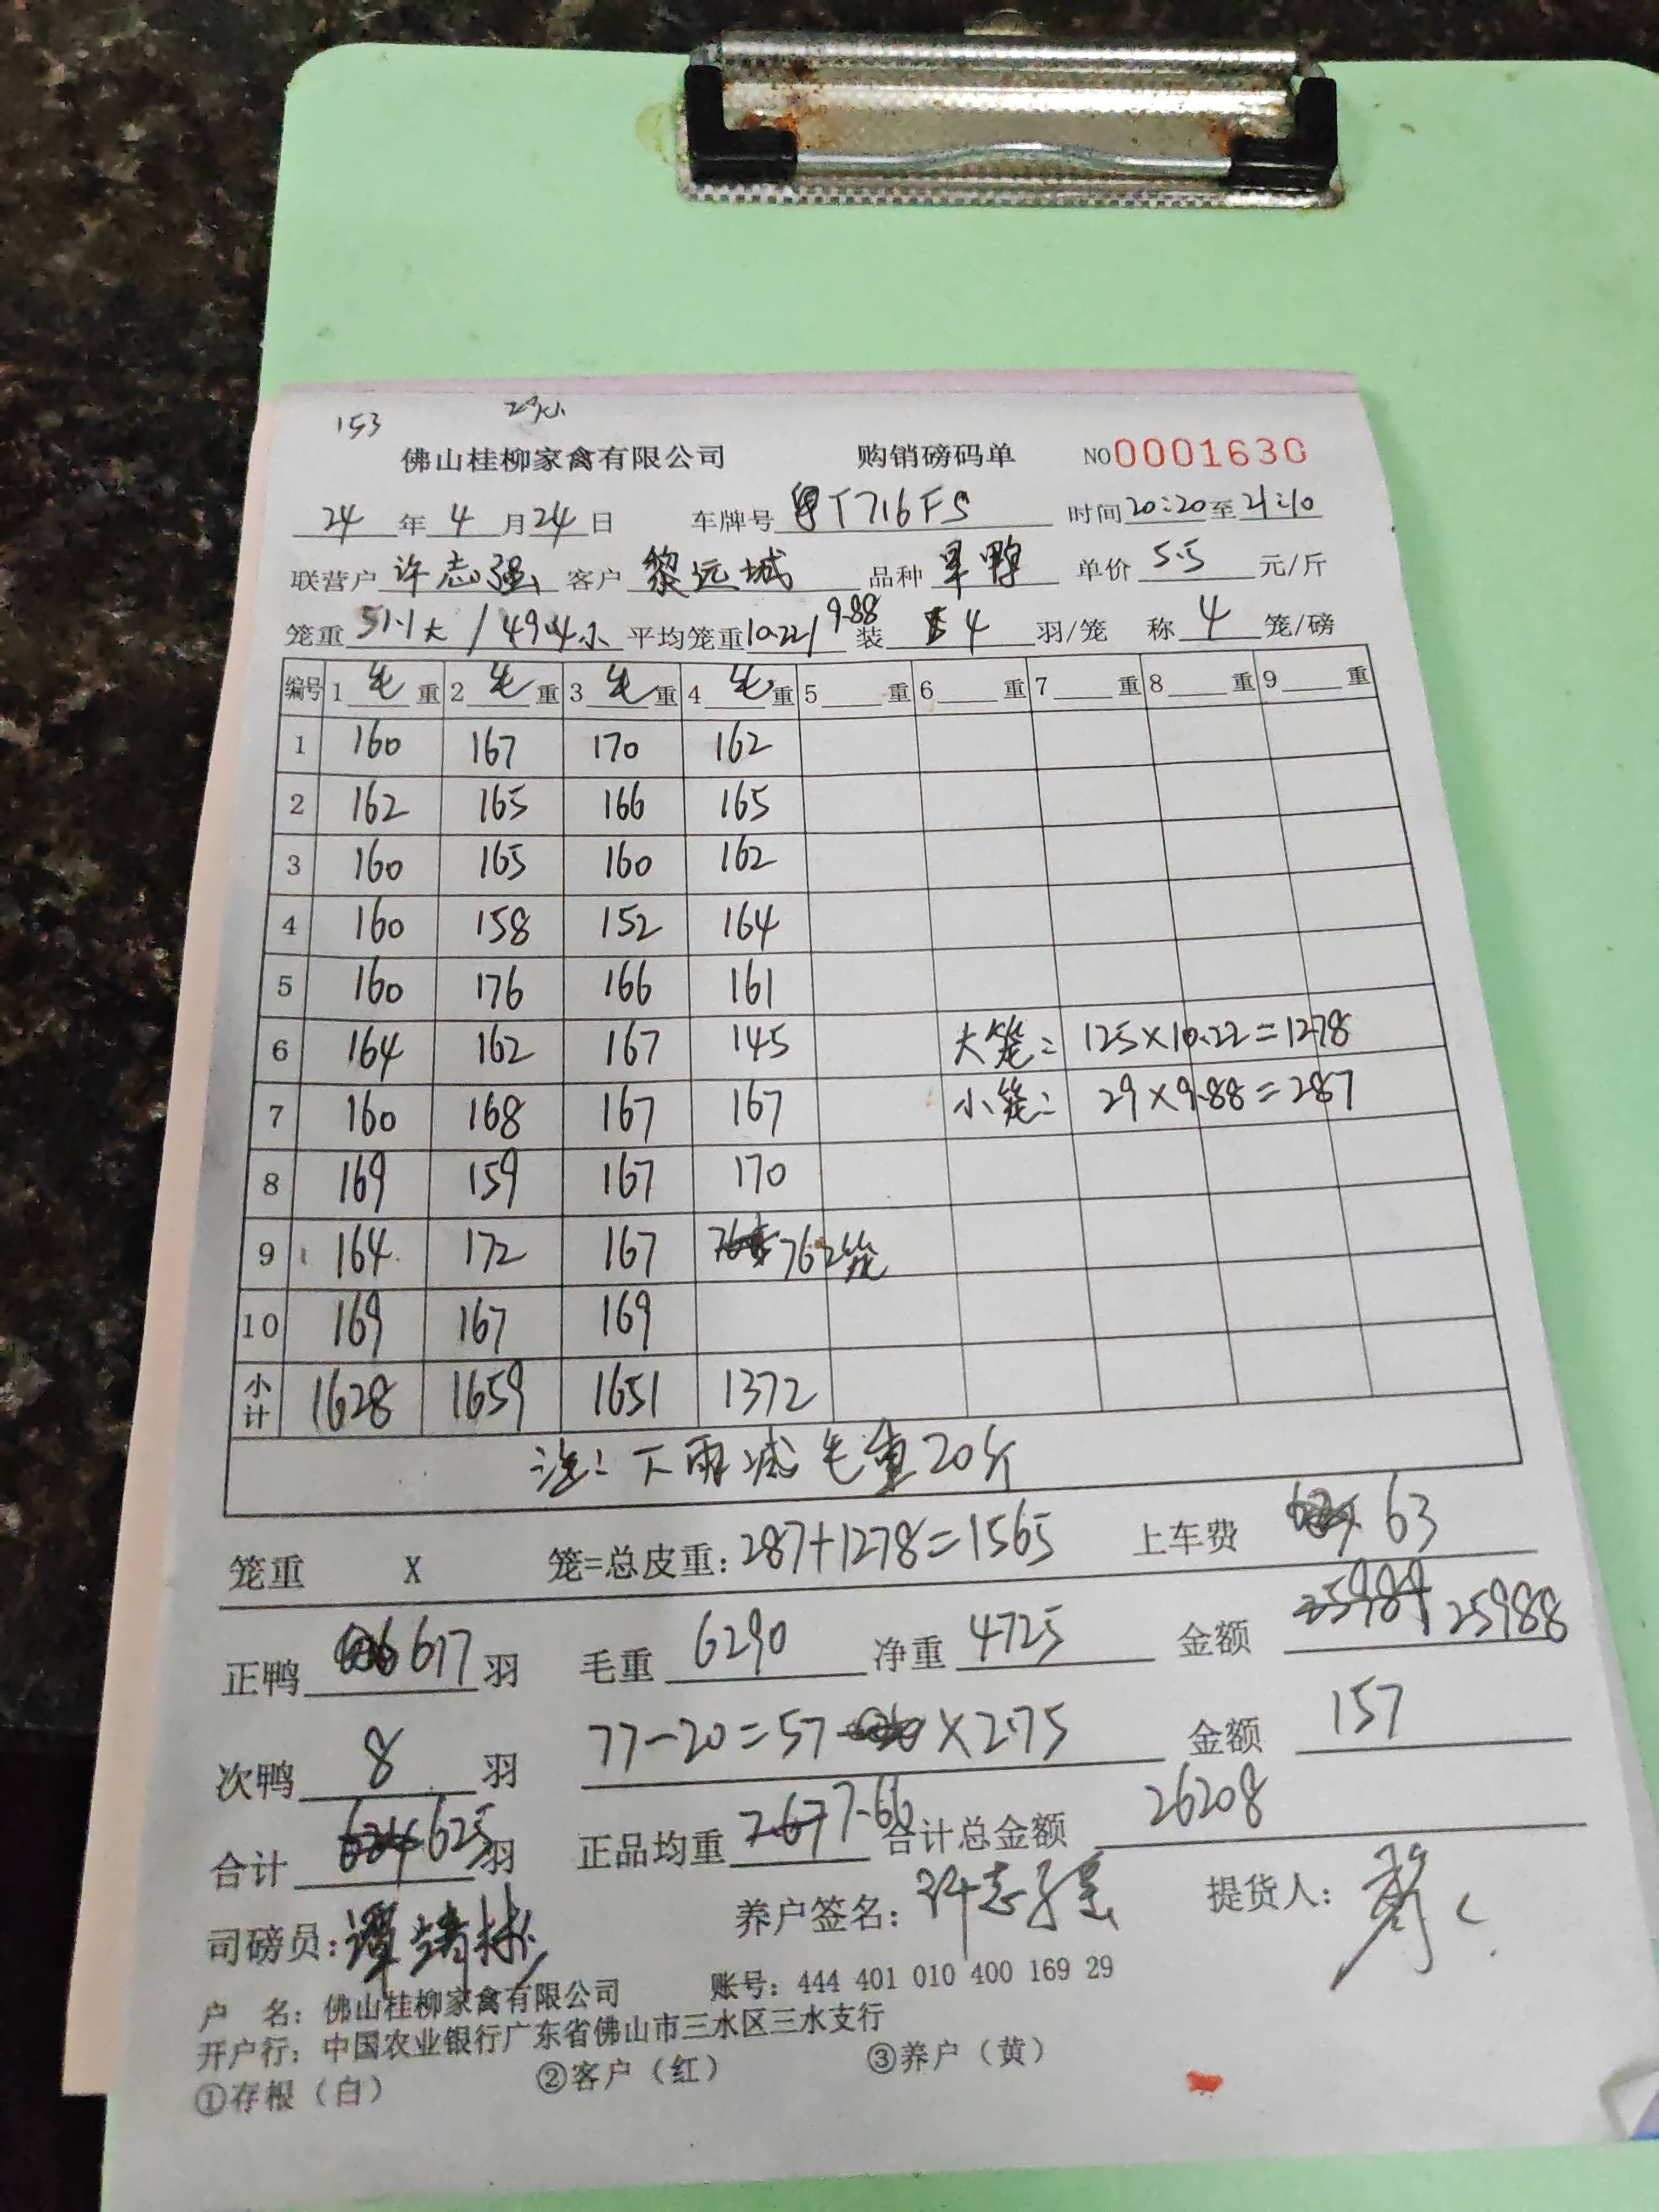 153
佛山桂柳家禽有限公司 购销磅码单 NO0001630
24年4月24日 车牌号 粤T716FS 时间20:20至21:10
联营户 许志强 客户 黎远城 品种 旱鸭 单价 5.5 元/斤
笼重 51.1大/49.4小 平均笼重10.22/9.88 装 4 羽/笼 称 4 笼/磅
编号 1 毛 重 2 毛 重 3 毛 重 4 毛 重 5 重 6 重 7 重 8 重 9 重
1 160 167 170 162
2 162 165 166 165
3 160 165 160 162
4 160 158 152 164
5 160 176 166 161
6 164 162 167 145 大笼: 125×10.22=1278
7 160 168 167 167 小笼: 29×9.88=287
8 169 159 167 170
9 164 172 167 76 2笼
10 169 167 169
小计 1628 1659 1651 1372
注: 下雨减毛重20斤
笼重 X 笼=总皮重: 287+1278=1565 上车费 63
正鸭 617 羽 毛重 6290 净重 4725 金额 25988
次鸭 8 羽 77-20=57 ×2.75 金额 157
合计 625 羽 正品均重 7.66 合计总金额 26208
司磅员: 谭 养户签名: 许志强 提货人:
户 名: 佛山桂柳家禽有限公司 账号: 444 401 010 400 169 29
开户行: 中国农业银行广东省佛山市三水区三水支行
①存根（白） ②客户（红） ③养户（黄）